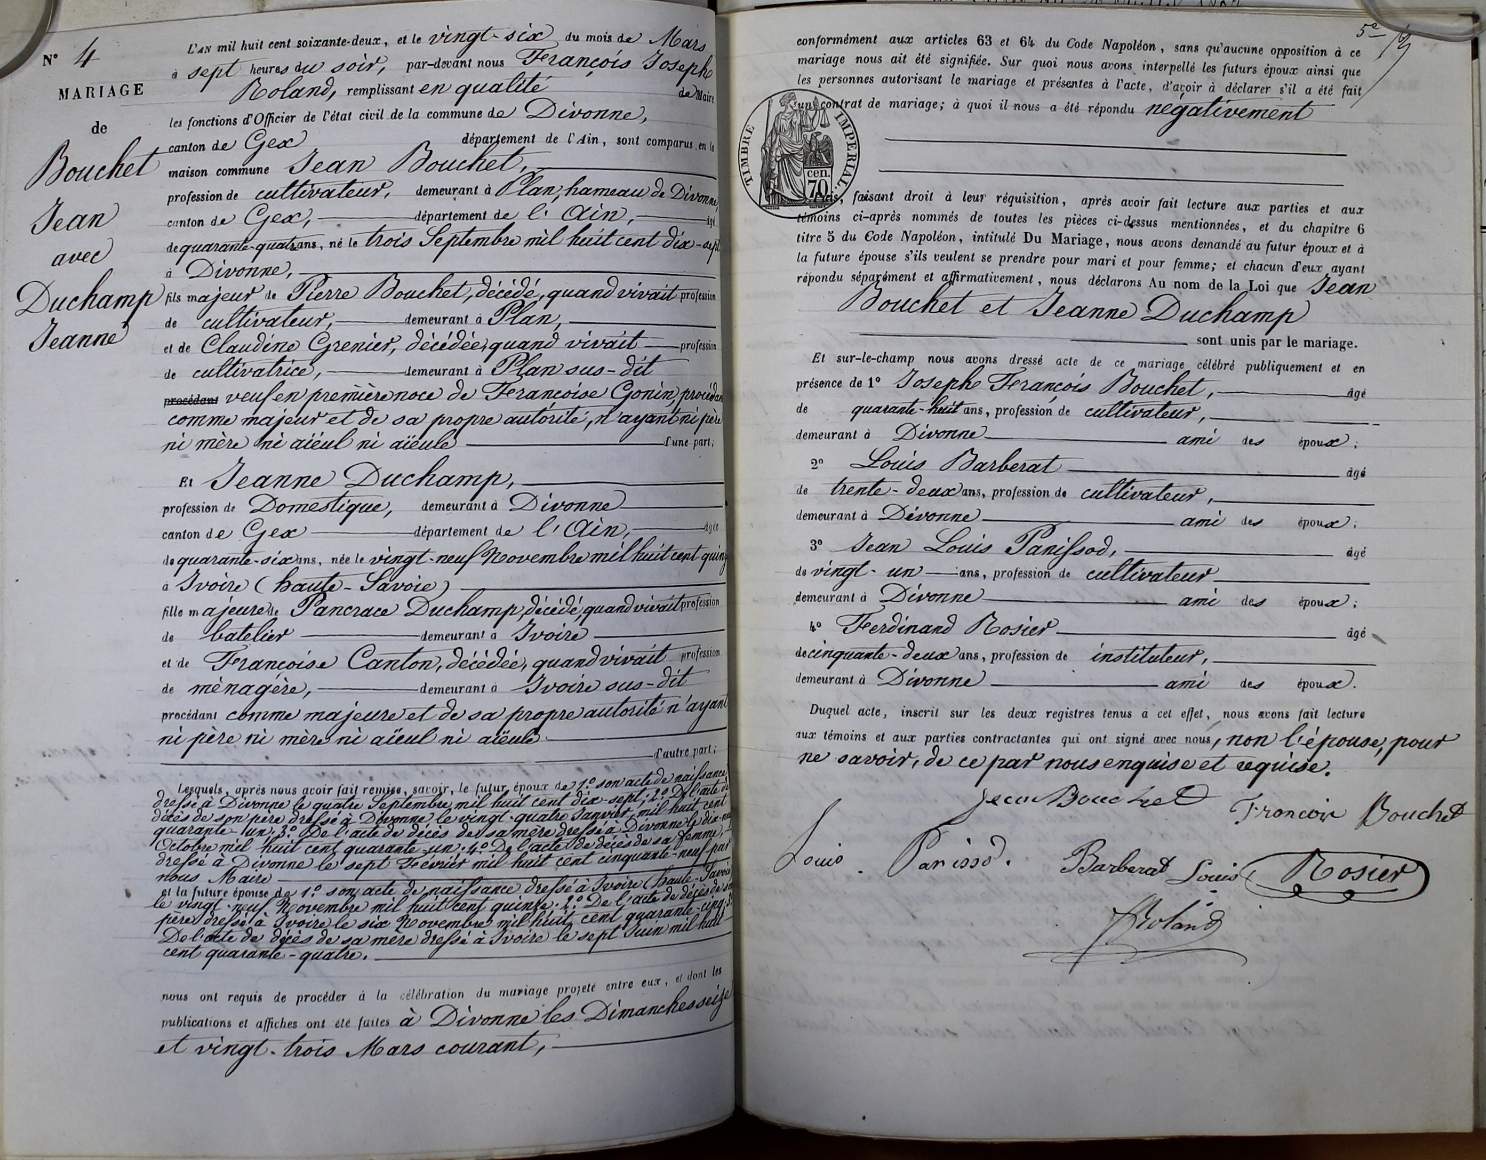 N° 4
MARIAGE
de
Bouchet
Jean
avec
Duchamp
Jeanne
L'AN mil huit cent soixante-deux, et le vingt-six du mois de Mars
à sept heures du soir, par-devant nous François Joseph
Roland, remplissant en qualité de Maire
les fonctions d'Officier de l'état civil de la commune de Divonne,
canton de Gex département de l'Ain, sont comparus en la
maison commune Jean Bouchet,
profession de cultivateur, demeurant à Plan, hameau de Divonne
canton de Gex, département de l'Ain, âgé
de quarante-quatre ans, né le trois Septembre mil huit cent dix-sept
à Divonne,
fils majeur de Pierre Bouchet, décédé, quand vivait profession
de cultivateur, demeurant à Plan,
et de Claudine Grenier, décédée, quand vivait profession
de cultivatrice, demeurant à Plan sus-dit
procédant veuf en première noce de Françoise Gonin, procédant
comme majeur et de sa propre autorité, n'ayant ni père
ni mère ni aïeul ni aïeule d'une part;
Et Jeanne Duchamp,
profession de Domestique, demeurant à Divonne
canton de Gex département de l'Ain, âgée
de quarante-six ans, née le vingt-neuf Novembre mil huit cent quinze
à Ivoire (haute-Savoie)
fille majeure de Pancrace Duchamp, décédé, quand vivait profession
de batelier demeurant à Ivoire
et de Françoise Canton, décédée, quand vivait profession
de ménagère, demeurant à Ivoire sus-dit
procédant comme majeure et de sa propre autorité n'ayant
ni père ni mère ni aïeul ni aïeule
d'autre part;
Lesquels, après nous avoir fait remise, savoir, le futur époux de 1.° son acte de naissance
dressé à Divonne le quatre Septembre mil huit cent dix-sept, 2.° De l'acte de
décès de son père dressé à Divonne le vingt-quatre Janvier mil huit cent
quarante-un. 3.° De l'acte de décès de sa mère dressé à Divonne le dix-neuf
Octobre mil huit cent quarante-un. 4.° De l'acte de décès de sa femme,
dressé à Divonne le sept Février mil huit cent cinquante-neuf par
nous Maire
et la future épouse de 1.° son acte de naissance dressé à Ivoire (haute-Savoie
le vingt-neuf Novembre mil huit cent quinze. 2.° De l'acte de décès de son
père dressé à Ivoire le six Novembre mil huit cent quarante-cinq. 3.°
De l'acte de décès de sa mère dressé à Ivoire le sept Juin mil huit
cent quarante-quatre.
nous ont requis de procéder à la célébration du mariage projeté entre eux, et dont les
publications et affiches ont été faites à Divonne les Dimanches seize
et vingt-trois Mars courant,
5e
conformément aux articles 63 et 64 du Code Napoléon, sans qu'aucune opposition à ce
mariage nous ait été signifiée. Sur quoi nous avons interpellé les futurs époux ainsi que
les personnes autorisant le mariage et présentes à l'acte, d'avoir à déclarer s'il a été fait
un contrat de mariage; à quoi il nous a été répondu négativement
TIMBRE IMPERIAL.
cen.
70
faisant droit à leur réquisition, après avoir fait lecture aux parties et aux
témoins ci-après nommés de toutes les pièces ci-dessus mentionnées, et du chapitre 6
titre 5 du Code Napoléon, intitulé Du Mariage, nous avons demandé au futur époux et à
la future épouse s'ils veulent se prendre pour mari et pour femme; et chacun d'eux ayant
répondu séparément et affirmativement, nous déclarons Au nom de la Loi que Jean
Bouchet et Jeanne Duchamp
sont unis par le mariage.
Et sur-le-champ nous avons dressé acte de ce mariage célébré publiquement et en
présence de 1° Joseph François Bouchet, âgé
de quarante-huit ans, profession de cultivateur,
demeurant à Divonne ami des époux;
2° Louis Barberat âgé
de trente-deux ans, profession de cultivateur,
demeurant à Divonne ami des époux;
3° Jean Louis Panissod, âgé
de vingt-un ans, profession de cultivateur
demeurant à Divonne ami des époux;
4° Ferdinand Rosier âgé
de cinquante-deux ans, profession de instituteur,
demeurant à Divonne ami des époux.
Duquel acte, inscrit sur les deux registres tenus à cet effet, nous avons fait lecture
aux témoins et aux parties contractantes qui ont signé avec nous, non l'épouse, pour
ne savoir, de ce par nous enquise et requise.
Jean Bouchet François Bouchet
Louis Panissod. Barberat Louis Rosier
Roland